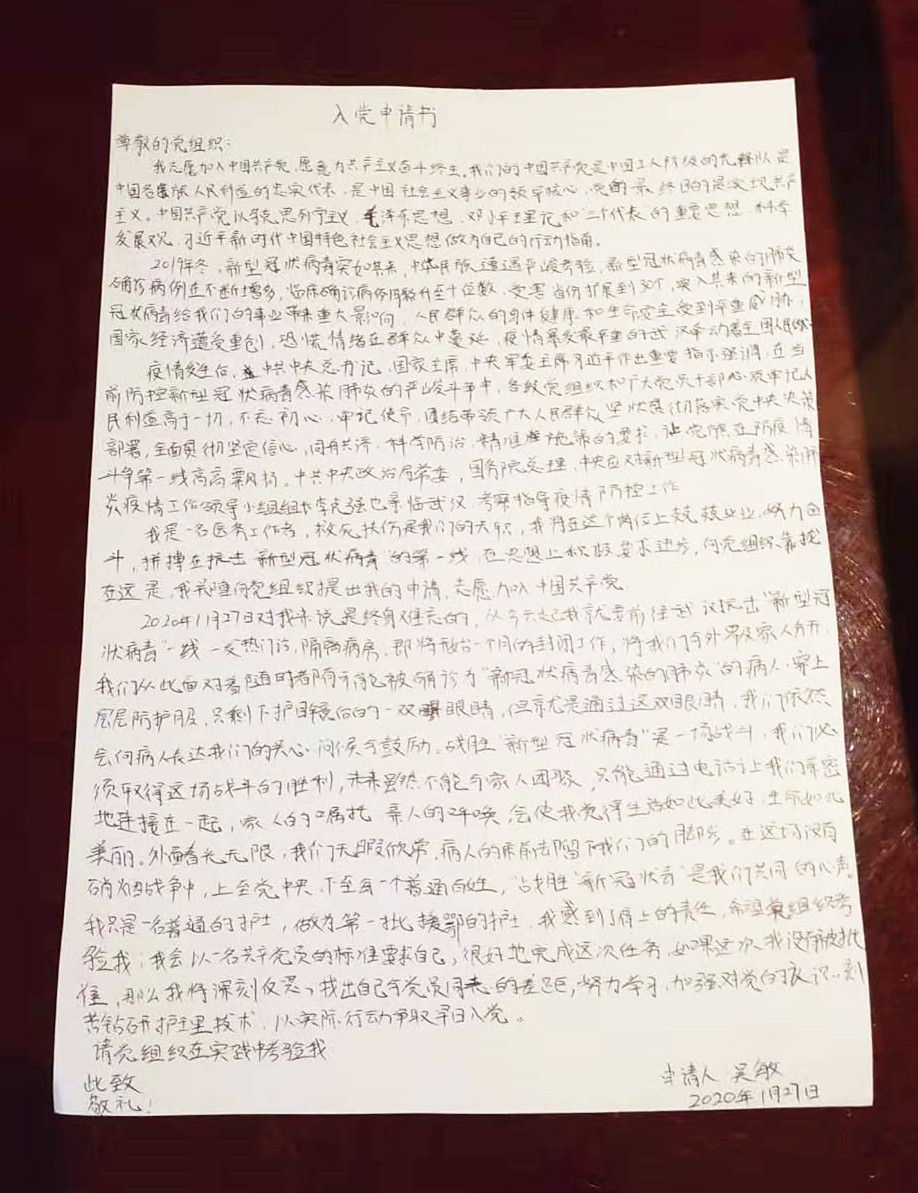 入党申请书
尊敬的党组织：
我志愿加入中国共产党，愿意为共产主义奋斗终生。我们的中国共产党是中国工人阶级的先锋队，是
中国各民族人民利益的忠实代表，是中国社会主义事业的领导核心，党的最终目的是实现共产
主义。中国共产党以马克思列宁主义、毛泽东思想、邓小平理论和“三个代表”的重要思想、科学
发展观、习近平新时代中国特色社会主义思想做为自己的行动指南。
2019年冬，新型冠状病毒突如其来，中华民族遭遇严峻考验，新型冠状病毒感染的肺炎
确诊病例在不断增多，临床确诊病例飙升至十位数，受害省份扩展到30个，突入其来的新型
冠状病毒给我们的事业带来重大影响，人民群众的身体健康和生命安全受到严重威胁，
国家经济遭受重创，恐慌情绪在群众中蔓延，疫情暴发最严重的武汉牵动着全国人民的心
疫情发生后，中共中央总书记、国家主席、中央军委主席习近平作出重要指示强调，在当
前防控新型冠状病毒感染肺炎的严峻斗争中，各级党组织和广大党员干部必须牢记人
民利益高于一切，不忘初心、牢记使命，团结带领广大人民群众坚决贯彻落实党中央决策
部署，全面贯彻坚定信心、同舟共济、科学防治、精准施策的要求，让党旗在防疫情
斗争第一线高高飘扬。中共中央政治局常委，国务院总理，中央应对新型冠状病毒感染肺
炎疫情工作领导小组组长李克强也亲临武汉，考察指导疫情防控工作
我是一名医务工作者，救死扶伤是我们的天职，我将在这个岗位上兢兢业业，努力奋
斗，拼搏在抗击“新型冠状病毒”的第一线，在思想上积极要求进步，向党组织靠拢
在这里，我郑重向党组织提出我的申请，志愿加入中国共产党。
2020年1月27日对我来说是终身难忘的，从今天起我就要前往武汉抗击“新型冠
状病毒”一线—发热门诊，隔离病房，即将开始一个月的封闭工作，将我们与外界及家人分开，
我们从此面对着随时都有可能被确诊为“新冠状病毒感染的肺炎”的病人，穿上
层层防护服，只剩下护目镜后的一双眼睛，但就是通过这双眼睛，我们依然
会向病人表达我们的关心、问候与鼓励。战胜“新型冠状病毒”是一场战斗，我们必
须取得这场战斗的胜利，未来虽然不能与家人团聚，只能通过电话让我们亲密
地连接在一起，家人的嘱托，亲人的呼唤会使我觉得生活如此美好，生命如此
美丽。外面春光无限，我们无暇欣赏，病人的床前却留下我们的脚步。在这场没有
硝烟战争中，上至党中央，下至每一个普通百姓，“战胜新冠状毒”是我们共同的心声
我只是一名普通的护士，做为第一批援鄂的护士，我感到了肩上的责任，希望党组织考
验我；我会以一名共产党员的标准要求自己，很好地完成这次任务，如果这次我没有被批
准，那么我将深刻反思，找出自己与党员同志的差距，努力学习，加强对党的认识，刻
苦钻研护理技术，以实际行动争取早日入党。
请党组织在实践中考验我
此致
敬礼！
申请人 吴敏
2020年1月27日